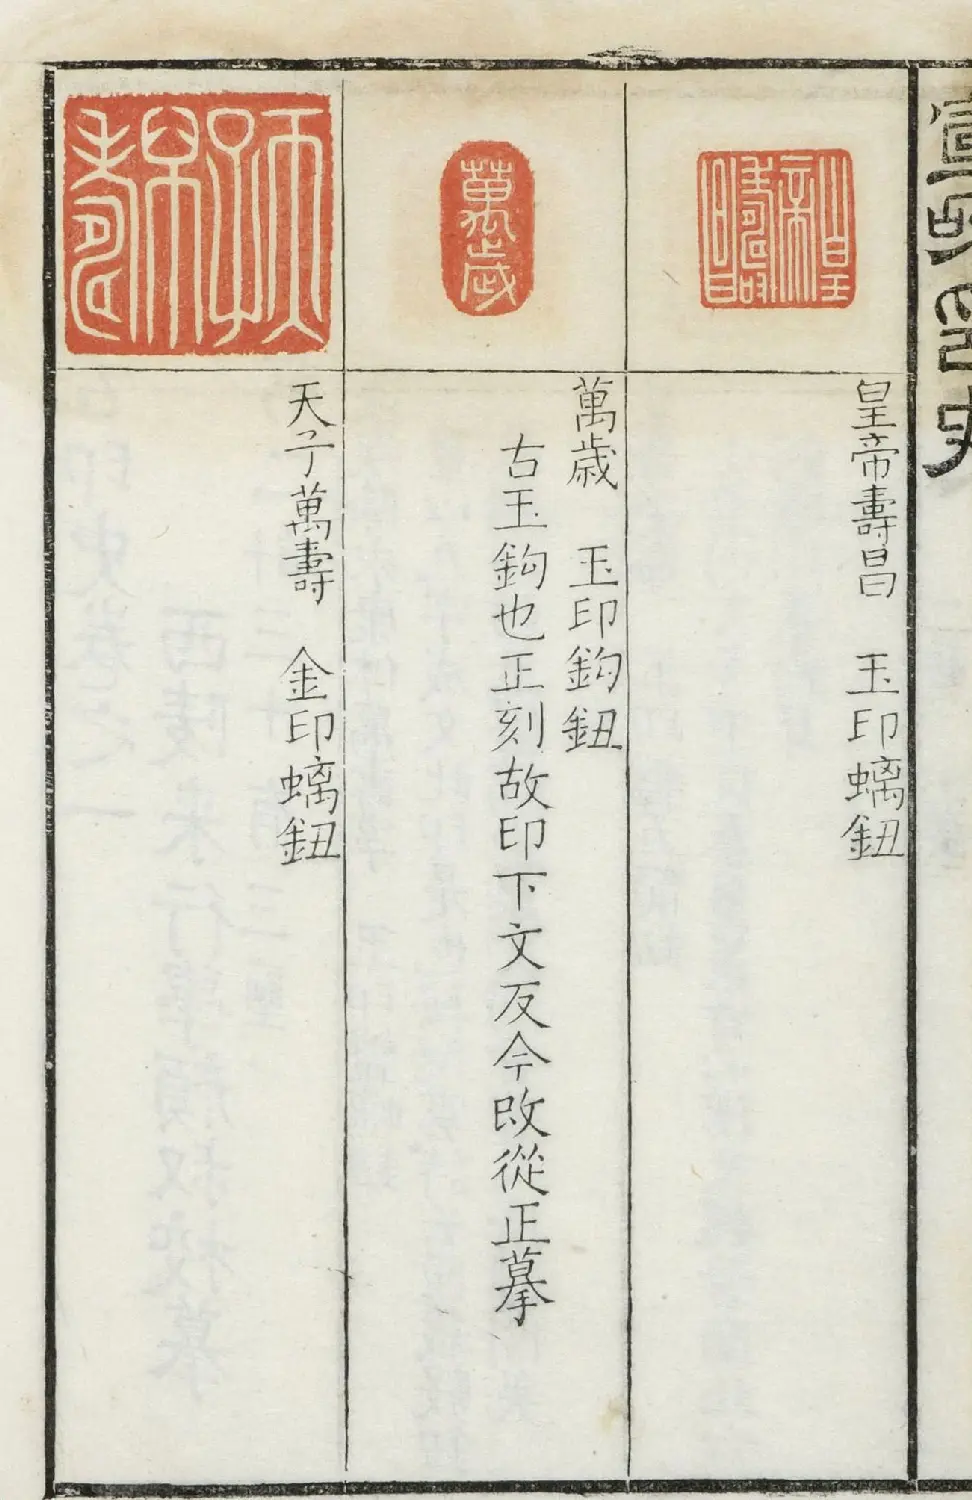 宣和印史
皇帝壽昌
皇帝壽昌　玉印螭鈕
萬歲
萬歲　玉印鈎鈕
古玉鈎也正刻故印下文反今改從正摹
天子萬壽
天子萬壽　金印螭鈕